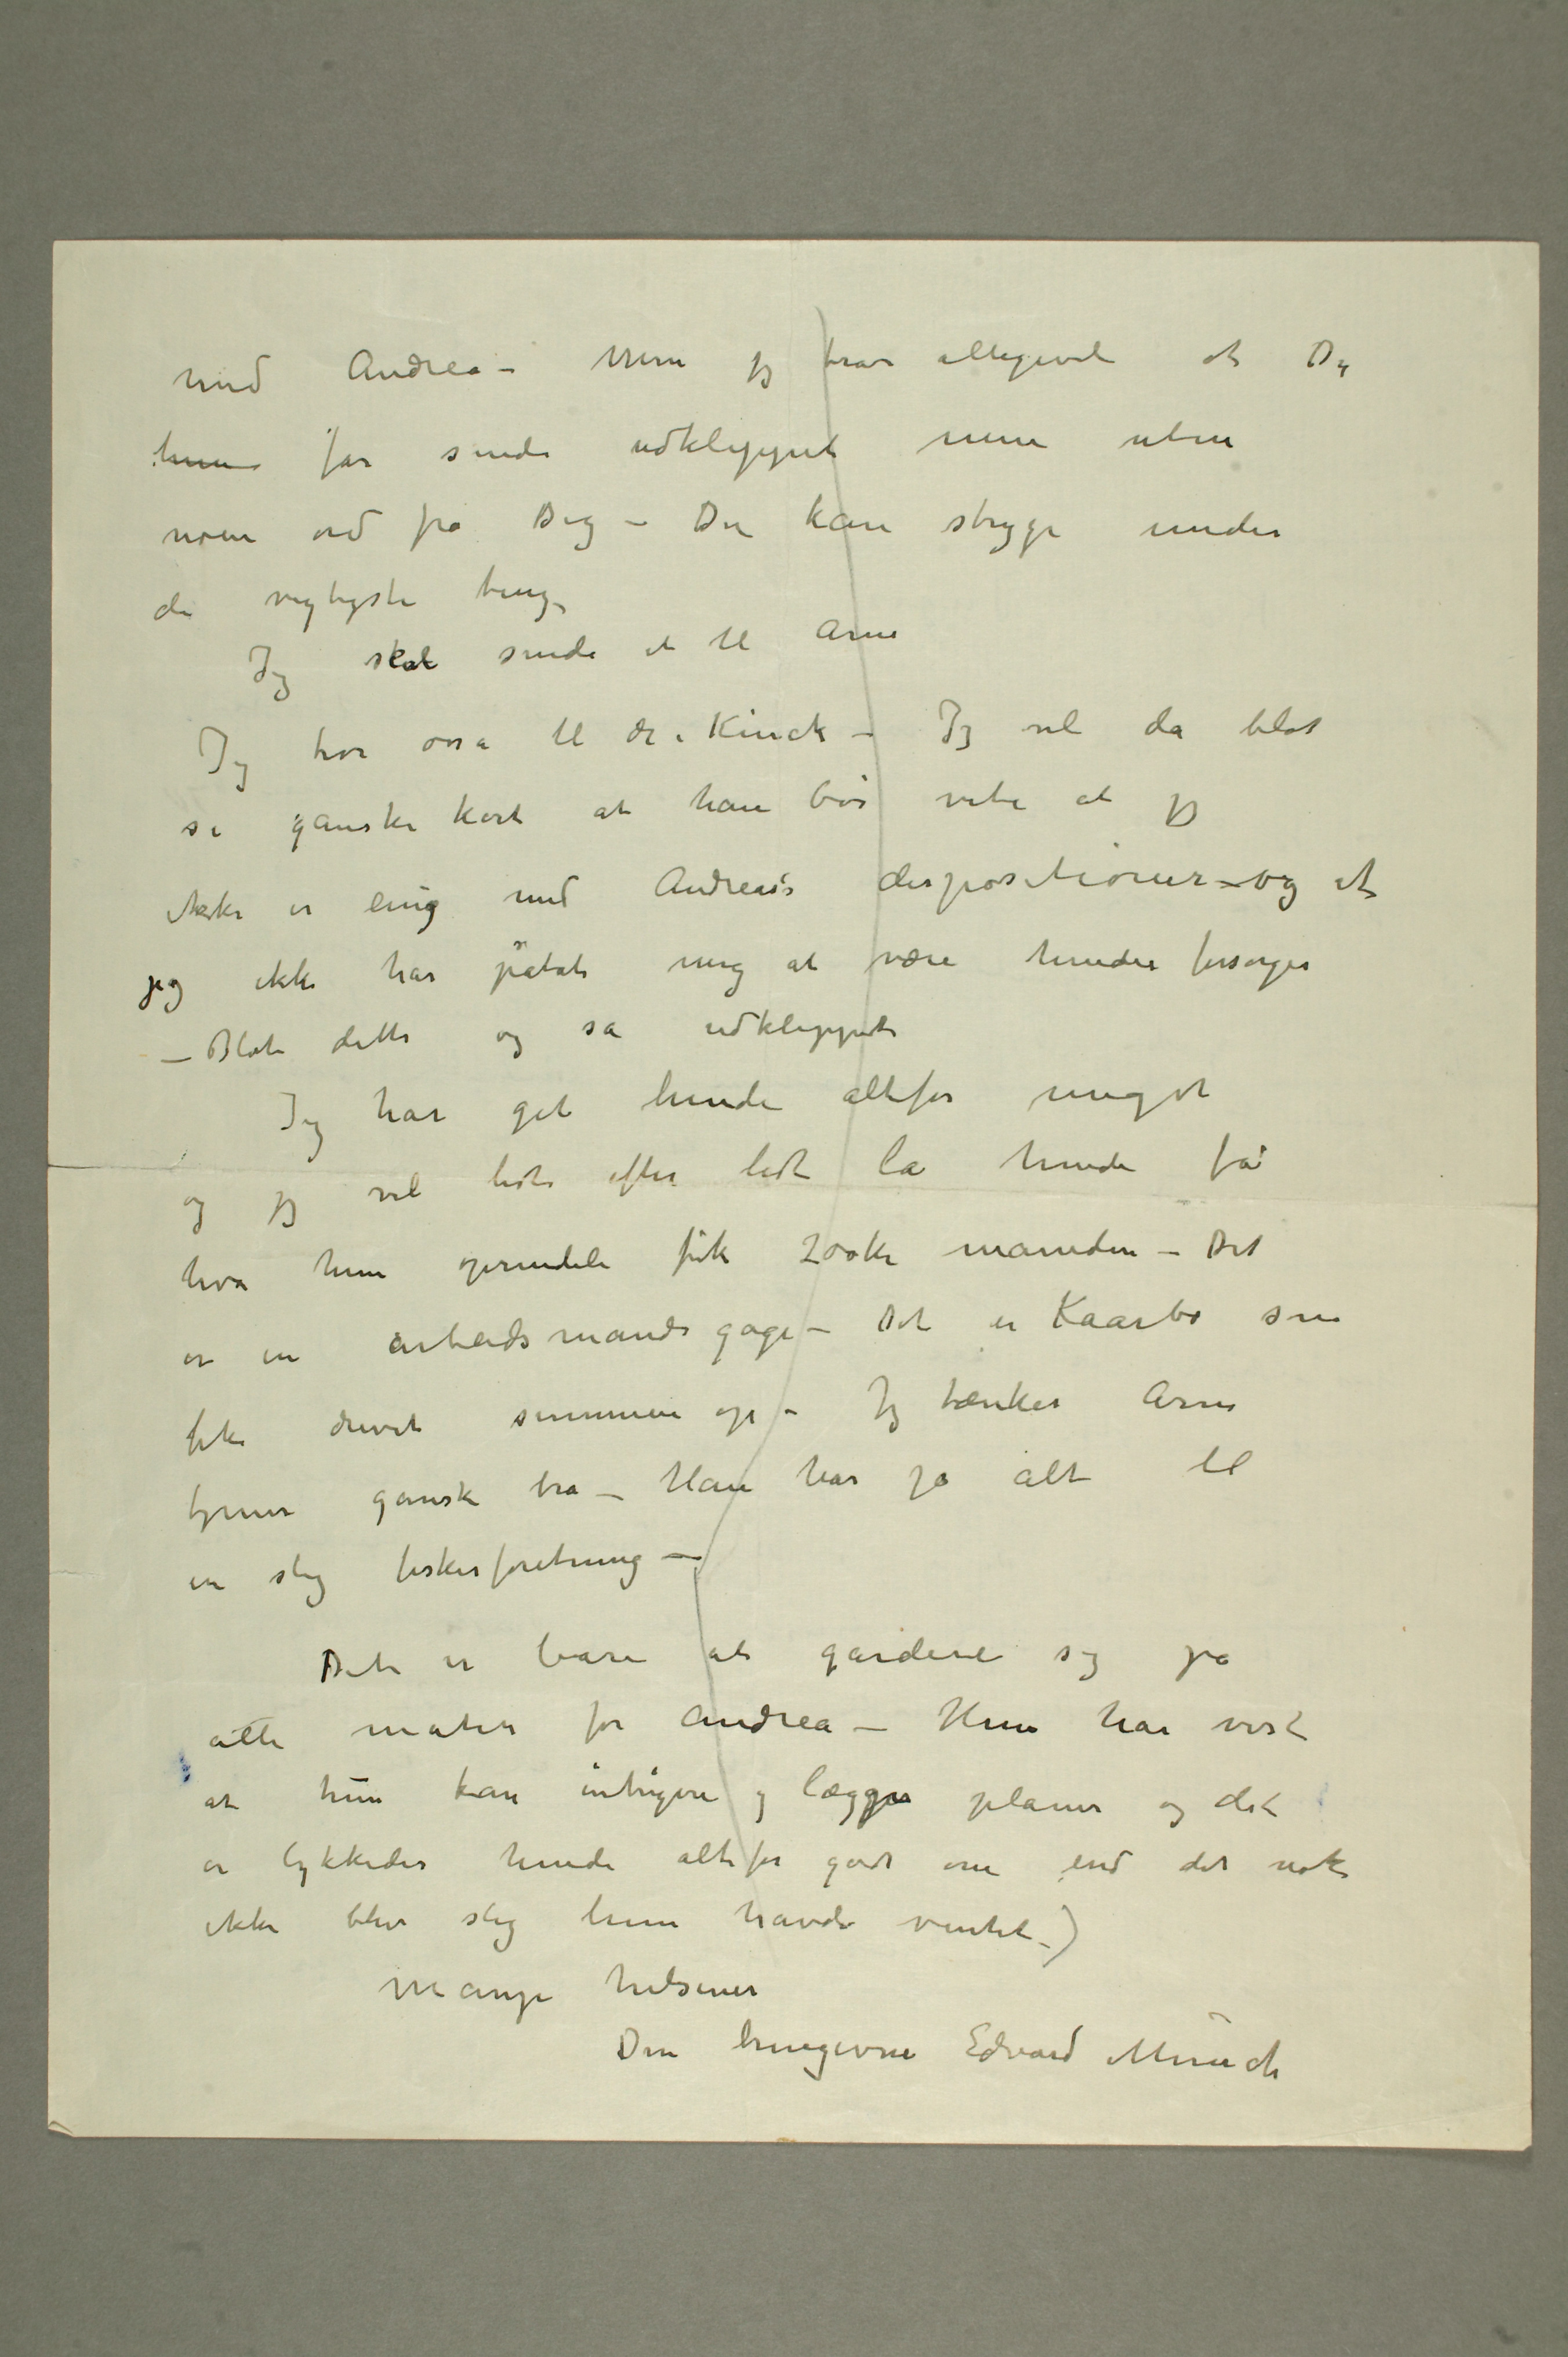 med Andrea – Men jeg tror alligevel at Du
hun får sende udklippet men uten
noen ord fra Dig – Du kan stryge under
de vigtigste ting,
Jeg skal sende et til Arne
Jeg tror osså til dr. Kinck – Jeg vil da blot
si ganske kort at han bør vite at jeg
ikke er enig med Andreas's dispositioner – og at
jeg ikke har påtat mig at være hendes forsørger
– Blot dette og så udklippet
Jeg har git hende altfor meget
og jeg vil lidt efter lidt la hende få
hva hun oprindeli fik 200 kr måneden – Det
er en arbeidsmands gage – Det er Kaarbø som
fik drevet summen op – Jeg tænker Arne
tjener ganske bra – Han har jo alt til
en slig fiskeforetning –
Det er bare at gardere sig på
alle måter for Andrea – Hun har vist
at hun kan intrigere og lægge planer og det
er lykkedes hende altfor godt om end det nok
ikke blev slig hun havde ventet –)
Mange hilsener
Din hengivne Edvard Munch